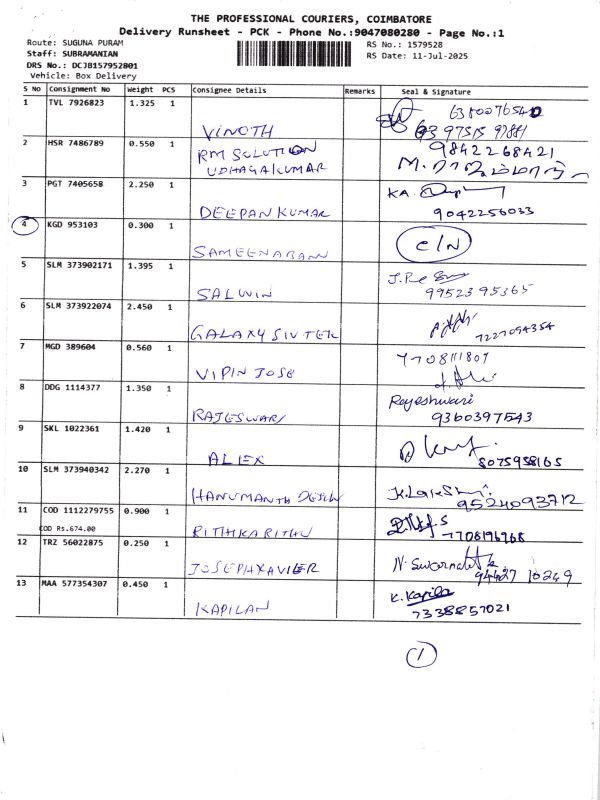 THE PROFESSIONAL COURIERS, COIMBATORE
Delivery Runsheet - PCK - Phone No.:9047080280 - Page No.:1
Route: SUGUNA PURAM
RS No.: 1579528
Staff: SUBRAMANIAN
RS Date: 11-Jul-2025
DRS No.: DCJB157952801
Vehicle: Box Delivery
S No Consignment No Weight PCS Consignee Details Remarks Seal & Signature
1 TVL 7926823 1.325 1
VINOTH
2 HSR 7486789 0.550 1 RM SOLUTION 9842268421
UDHAGAKUMAR
3 PGT 7405658 2.250 1 KA.
DEEPAN KUMAR 9042256033
4 KGD 953103 0.300 1 C/N
SAMEENABANN
5 SLM 373902171 1.395 1
SALWIN 9952395365
6 SLM 373922074 2.450 1
GALAXY SIVTEK 7227094354
7 MGD 389604 0.560 1 7708111807
VIPIN JOSE
8 DDG 1114377 1.350 1 Rajeshwari
RAJESWARI 9360397543
9 SKL 1022361 1.420 1
ALEX 8075958165
10 SLM 373940342 2.270 1
HANUMANTH 9524093712
11 COD 1112279755 0.900 1
COD Rs.674.00 RITHIKA RITHU 7708196768
12 TRZ 56022875 0.250 1
JOSEPHXAVIER 94427 10249
13 MAA 577354307 0.450 1 K. Kapila
KAPILAN 7338857021
1